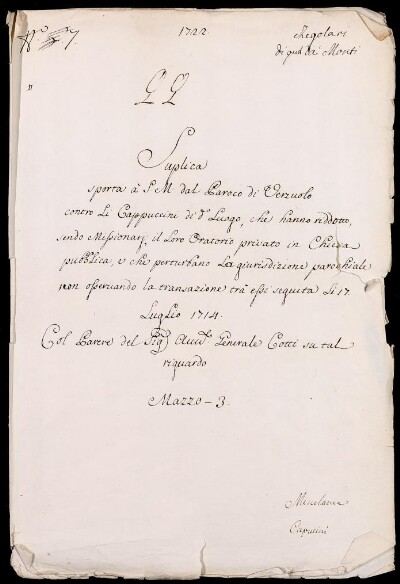 N.° 7.
1722
Regolari
di qua da' Monti
Suplica
sporta à S M dal Paroco di Verzuolo
contro Li Cappuccini di d.° Luogo, che hanno riddotto,
sendo Missionarj, il Loro Oratorio privato in Chiesa
pubblica, e che perturbano La giurisdizione parochiale
non osservando la transazione trà essi seguita Li 17
Luglio 1714.
Col Parere del Sig.r Aud.e Generale Cotti su tal
riguardo
Mazzo - 3.
Capucini